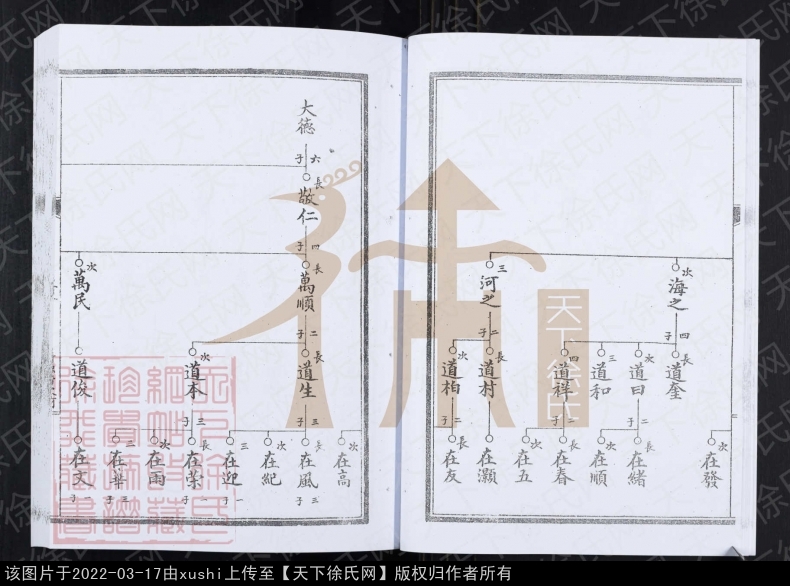 次
海之
四子
長
道奎
次
道曰
二子
三
道和
四
道祥
二子
次
在發
長
在緒
次
在順
長
在春
次
在五
三
河之
二子
長
道村
次
道柏
二子
在灝
長
在友
大德
六子
長
敬仁
四子
長
萬順
二子
長
道生
三子
次
道本
三子
次
在高
長
在風
三子
次
在紀
三
在迎
一子
長
在榮
一子
次
在雨
三
在華
三子
次
萬民
道俊
在文
一子
天下徐氏
天下徐氏网
该图片于2022-03-17由xushi上传至【天下徐氏网】版权归作者所有